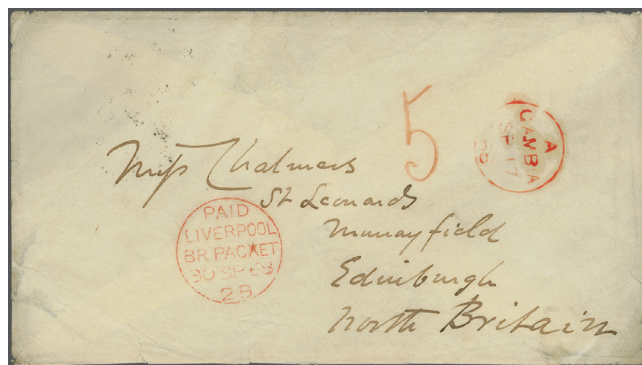 5
A
GAMBIA
SP 17
68
Miss Chalmers
St Leonards
Murrayfield
Edinburgh
North Britain
PAID
LIVERPOOL
BR. PACKET
30 SP 68
2 B